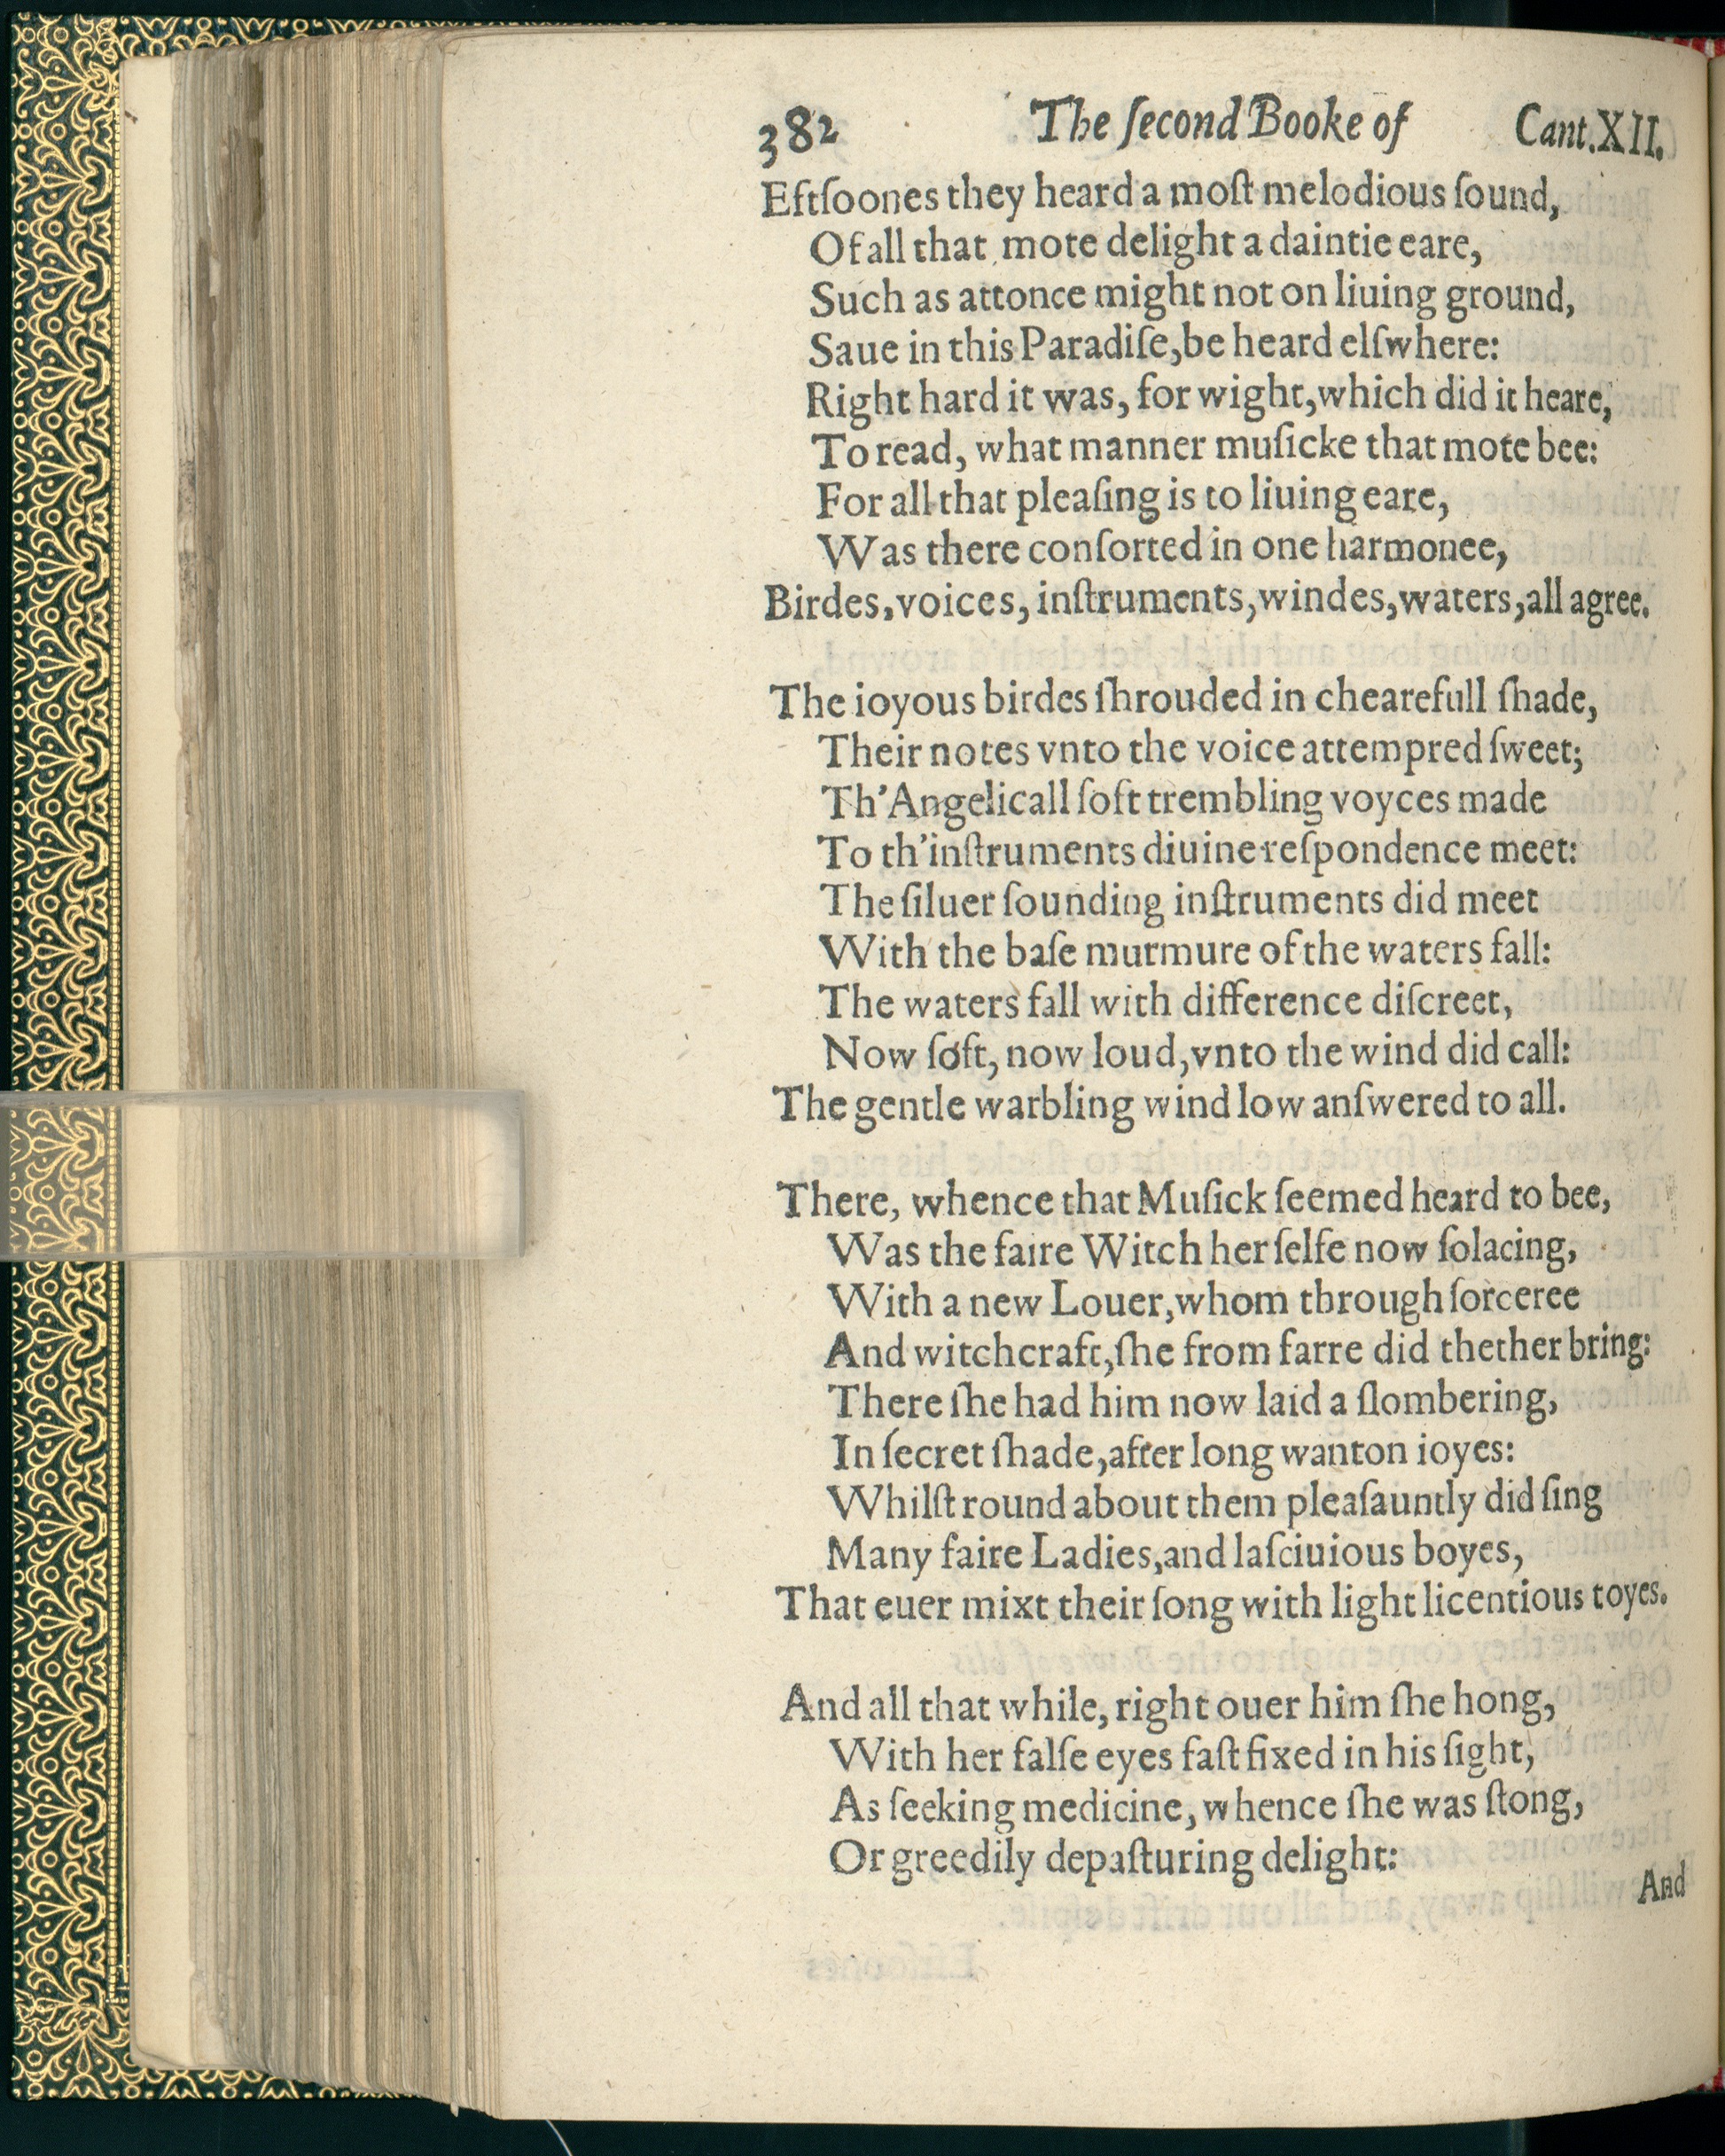 382 The ſecond Booke of Cant.XII.
Eftſoones they heard a moſt melodious ſound,
Of all that mote delight a daintie eare,
Such as attonce might not on liuing ground,
Saue in this Paradiſe, be heard elſwhere:
Right hard it was, for wight, which did it heare,
To read, what manner muſicke that mote bee:
For all that pleaſing is to liuing eare,
Was there conſorted in one harmonee,
Birdes, voices, inſtruments, windes, waters, all agree.
The ioyous birdes ſhrouded in chearefull ſhade,
Their notes vnto the voice attempred ſweet;
Th'Angelicall ſoft trembling voyces made
To th'inſtruments diuine reſpondence meet:
The ſiluer ſounding inſtruments did meet
With the baſe murmure of the waters fall:
The waters fall with difference diſcreet,
Now ſoft, now loud, vnto the wind did call:
The gentle warbling wind low anſwered to all.
There, whence that Muſick ſeemed heard to bee,
Was the faire Witch her ſelfe now ſolacing,
With a new Louer, whom through ſorceree
And witchcraft, ſhe from farre did thether bring:
There ſhe had him now laid a ſlombering,
In ſecret ſhade, after long wanton ioyes:
Whilſt round about them pleaſauntly did ſing
Many faire Ladies, and laſciuious boyes,
That euer mixt their ſong with light licentious toyes.
And all that while, right ouer him ſhe hong,
With her falſe eyes faſt fixed in his ſight,
As ſeeking medicine, whence ſhe was ſtong,
Or greedily depaſturing delight:
And